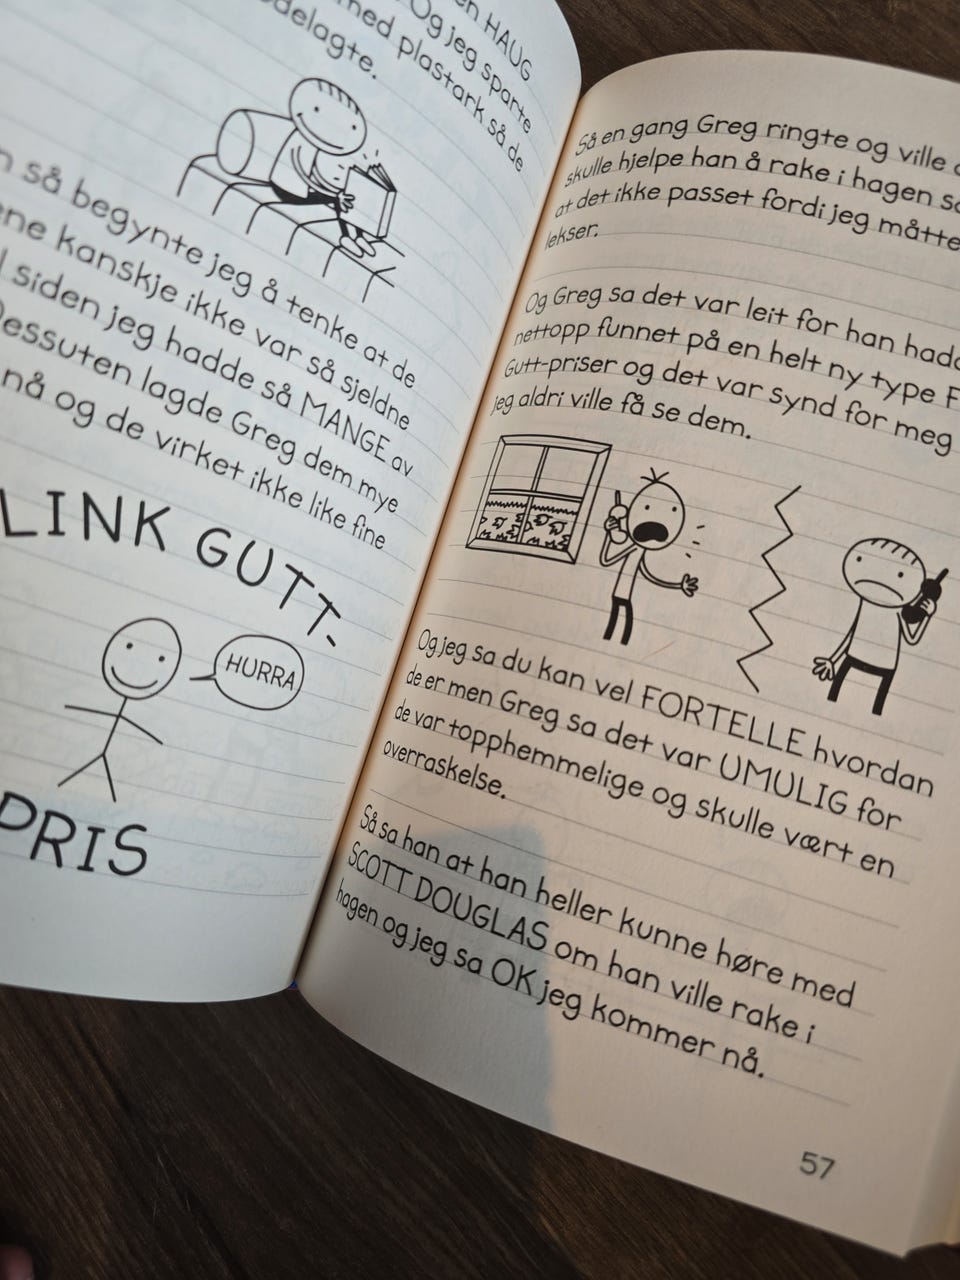 en HAUG
Og jeg sparte
med plastark så de
delagte.
så begynte jeg å tenke at de
ene kanskje ikke var så sjeldne
siden jeg hadde så MANGE av
Dessuten lagde Greg dem mye
nå og de virket ikke like fine
LINK GUTT-
HURRA
PRIS
Så en gang Greg ringte og ville
skulle hjelpe han å rake i hagen
at det ikke passet fordi jeg måtte
lekser.
Og Greg sa det var leit for han
nettopp funnet på en helt ny type F
Gutt-priser og det var synd for meg
jeg aldri ville få se dem.
Og jeg sa du kan vel FORTELLE hvordan
de er men Greg sa det var UMULIG for
de var topphemmelige og skulle vært en
overraskelse.
Så sa han at han heller kunne høre med
SCOTT DOUGLAS om han ville rake i
hagen og jeg sa OK jeg kommer nå.
57